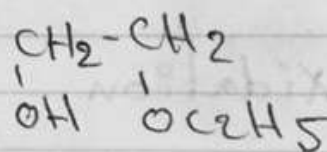 CH2-CH2
OH OC2H5